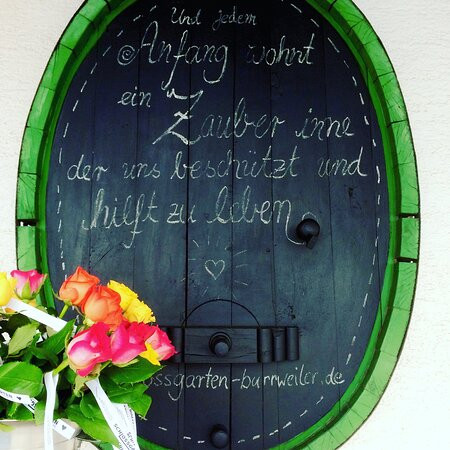 Und jedem
Anfang wohnt
ein Zauber inne
der uns beschützt und
hilft zu leben
ossgarten-burrweiler.de